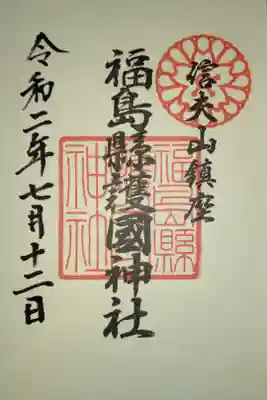 信夫山鎮座
福島縣護國神社
令和二年七月十二日
福島縣
神社